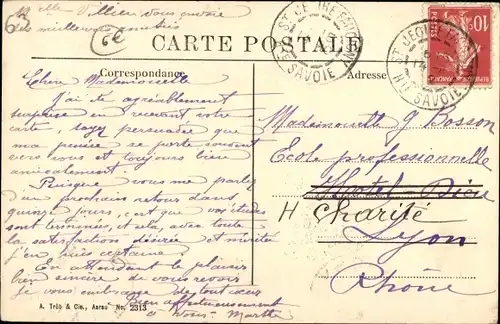 Mlle Villien vous envoie
ses meilleures amitiés
CARTE POSTALE
Correspondance
Adresse
HTE SAVOIE
HTE SAVOIE
10
Chère Mademoiselle
J'ai été agréablement
surprise en recevant votre
carte, soyez persuadée que
ma pensée se porte souvent
vers vous et toujours bien
amicalement.
Puisque vous me parlez
d'un prochain retour dans
quinze jours, c'est que vos études
sont terminées, et cela, avec toute
la satisfaction désirée et méritée
j'en suis certaine.
En attendant le plaisir
bien sincère de vous revoir
je vous embrasse de tout cœur
Bien affectueusement
à vous Marthe
Mademoiselle J Bosson
Ecole professionnelle
Hôtel-Dieu
H Charité
Lyon
Rhône
A. Trüb & Cie., Aarau No. 2313